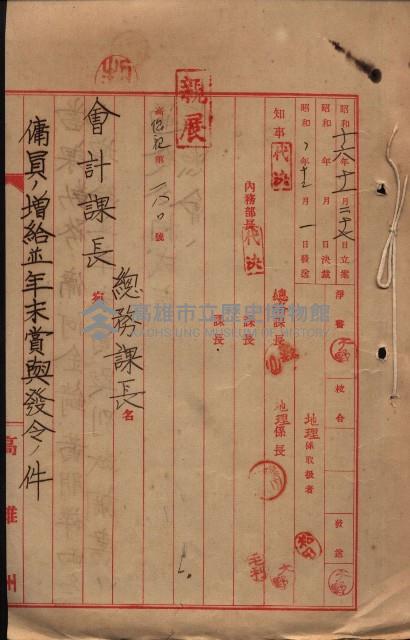 昭和十六年十一月二十七日立案　淨書　校合　發送
昭和　年　月　日決裁
昭和　年十二月一日發送　地理係取扱者
知事　代決　總務課長　地理係長
內務部長　代決　課長
課長
親展
高　第一八〇號
總務課長名
會計課長　宛
傭員ノ增給並年末賞與發令ノ件
高雄州
高雄市立歷史博物館
KAOHSIUNG MUSEUM OF HISTORY